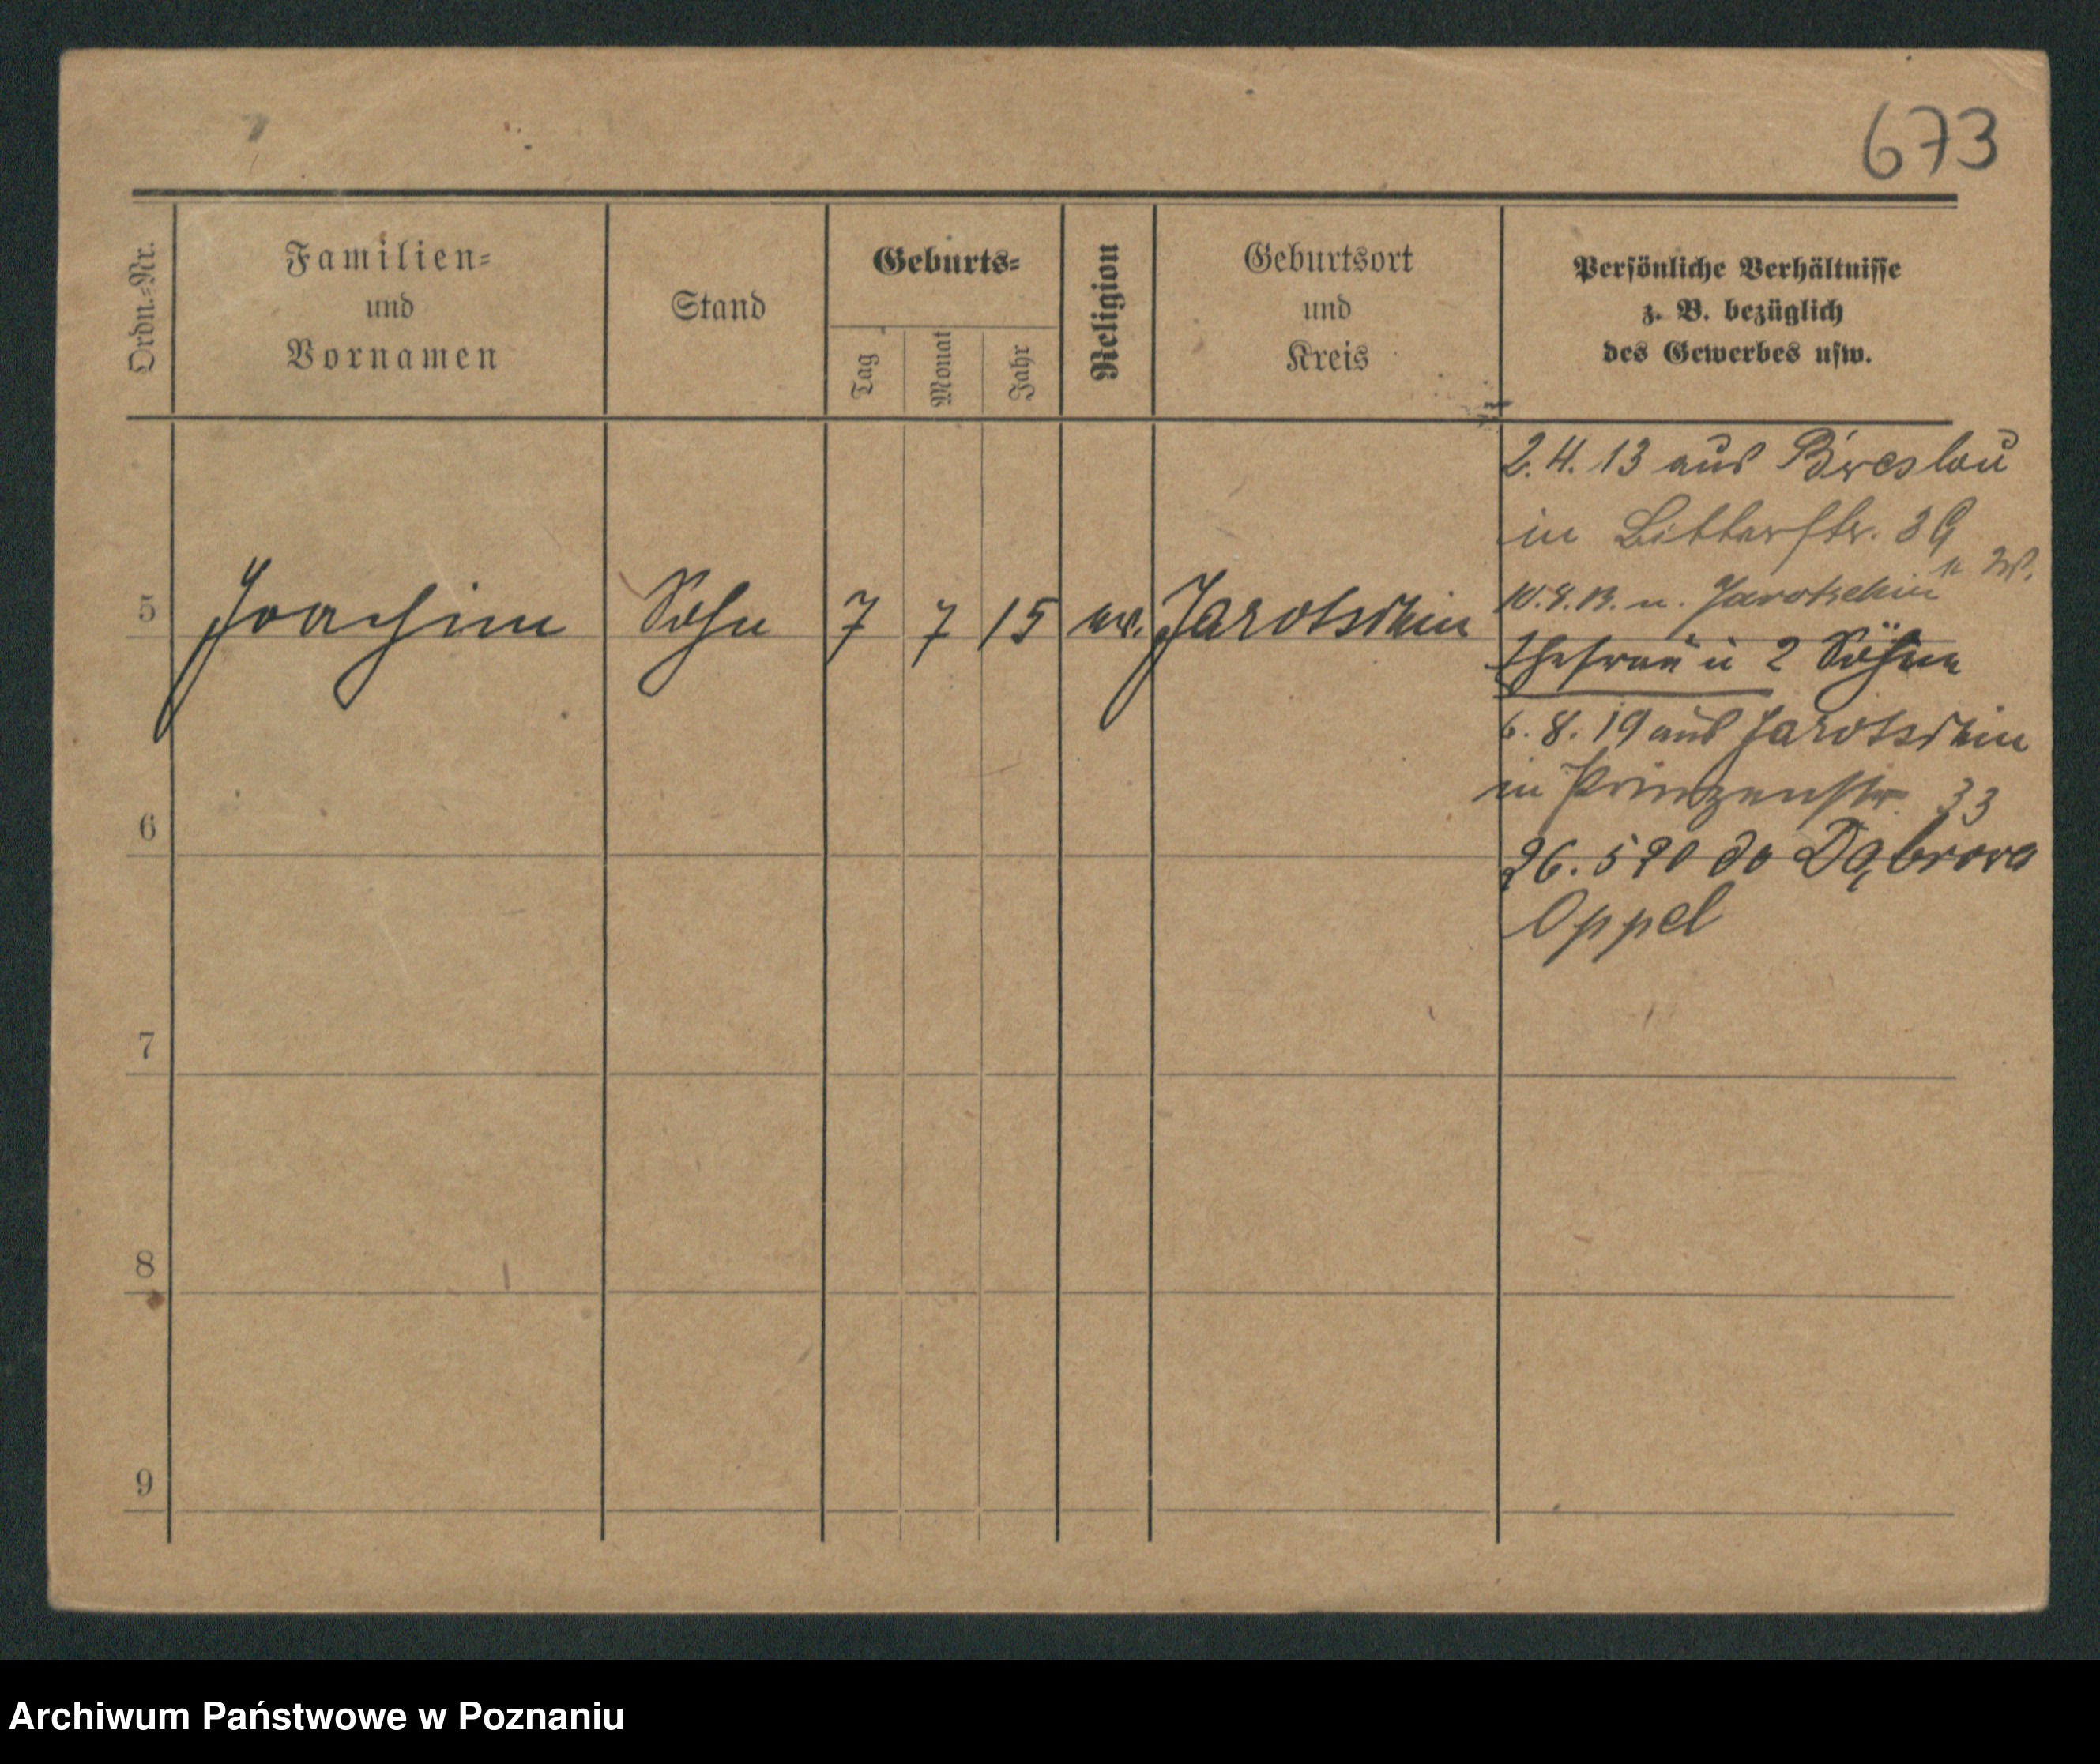 673
Ordn.-Nr.
Familien-
und
Vornamen
Stand
Geburts-
Tag
Monat
Jahr
Religion
Geburtsort
und
Kreis
Persönliche Verhältnisse
z. B. bezüglich
des Gewerbes usw.
2.4.13 aus Breslau
in Bitterstr. 39
5 Joachim Sohn 7 7 15 ev. Jarotschin
n. Jarotschin
Ehefrau u 2 Söhne
6.8.19 aus Jarotschin
in Prinzenstr 33
6
26.5 20 do Dąbrova
Oppel
7
8
9
Archiwum Państwowe w Poznaniu